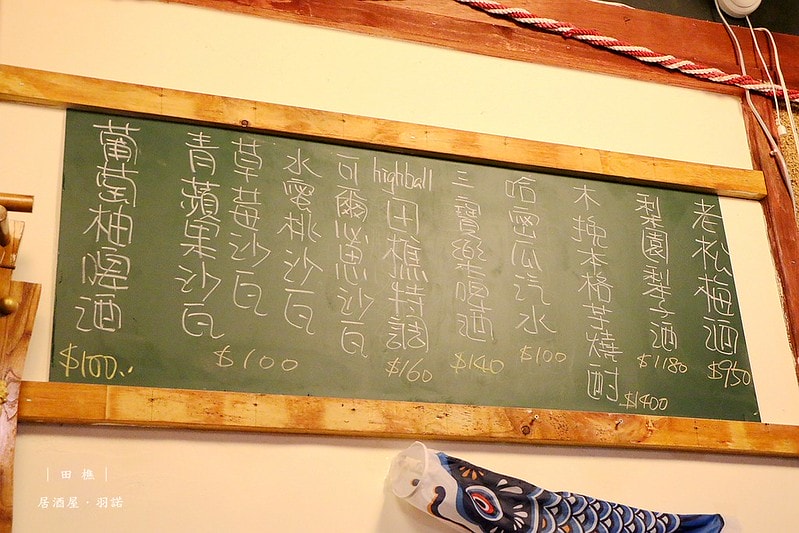 老松梅酒
$950
梨園梨子酒
$1180
木挽本格芋燒酎
$1400
哈密瓜汽水
$100
三寶樂啤酒
$140
highball
田樵特調
$160
可爾必思沙瓦
水蜜桃沙瓦
草莓沙瓦
青蘋果沙瓦
$100
葡萄柚啤酒
$100..
| 田 樵 |
居酒屋·羽諾